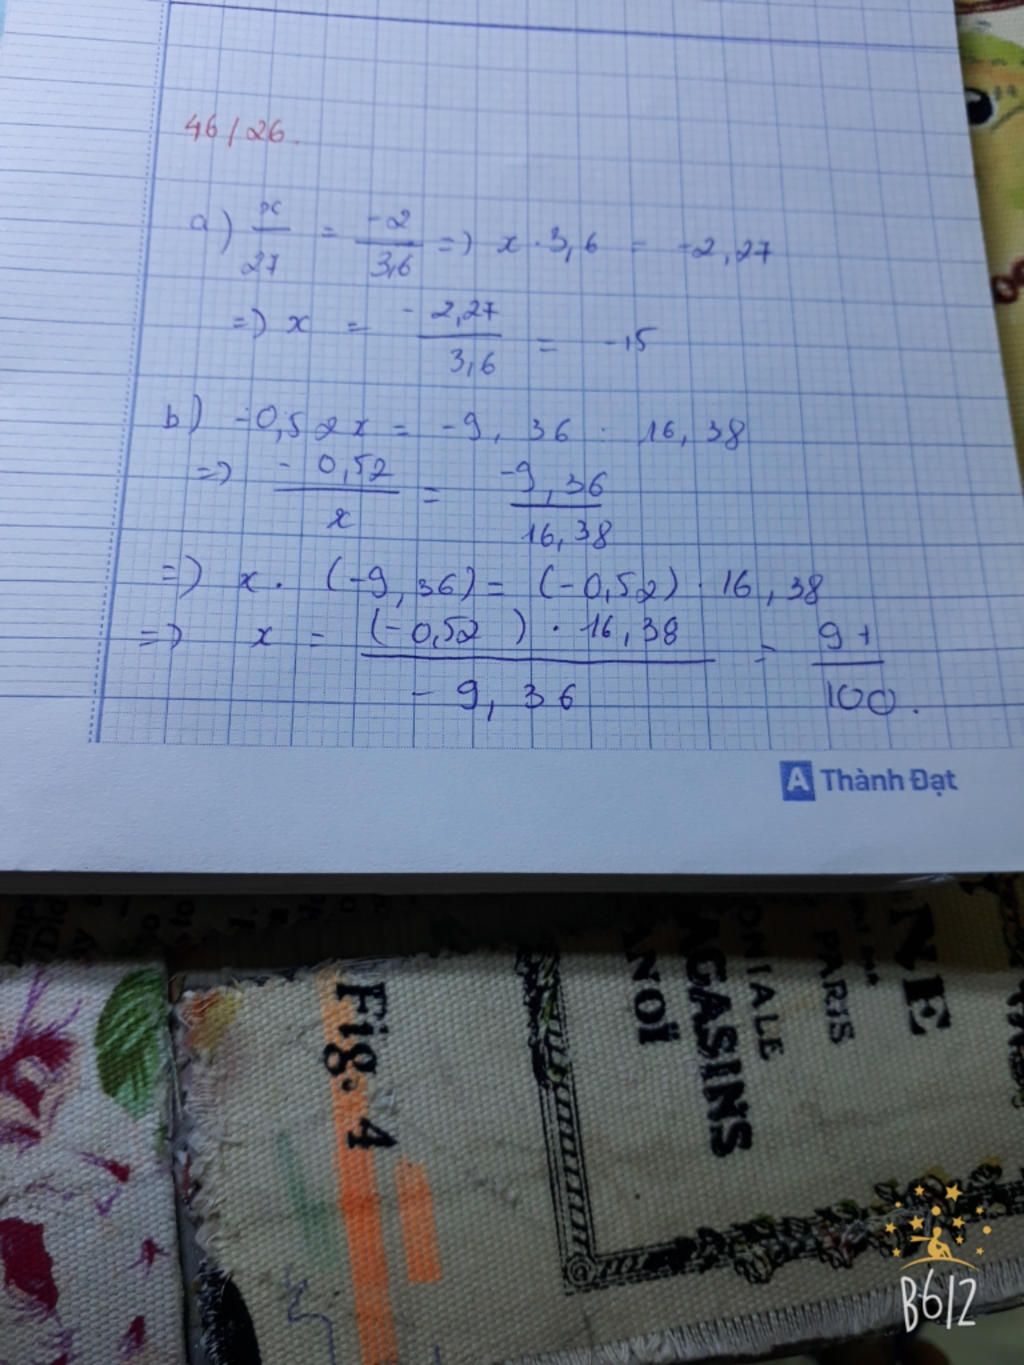 46/26.
a) x/27 = -2/3,6 => x . 3,6 = -2,27
=> x = - 2,27/3,6 = -15
b) -0,52x = -9,36 : 16,38
=> - 0,52/x = -9,36/16,38
=> x. (-9,36) = (-0,52) . 16,38
=> x = (-0,52) . 16,38/- 9,36 = 91/100.
A Thành Đạt
Fig. 4
ANOÏ
AGASINS
ONIALE
PARIS
NE
B612